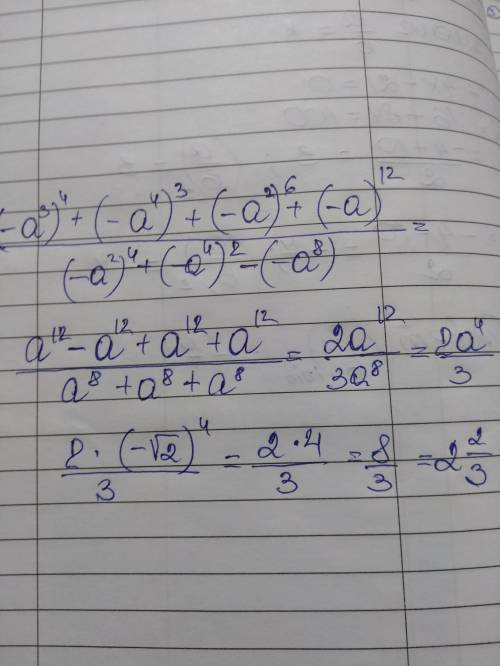 (-a³)⁴ + (-a⁴)³ + (-a²)⁶ + (-a)¹² / (-a²)⁴ + (-a⁴)² - (-a⁸) =
a¹² - a¹² + a¹² + a¹² / a⁸ + a⁸ + a⁸ = 2a¹² / 3a⁸ = 2a⁴ / 3
2 · (-√2)⁴ / 3 = 2 · 4 / 3 = 8 / 3 = 2 2/3